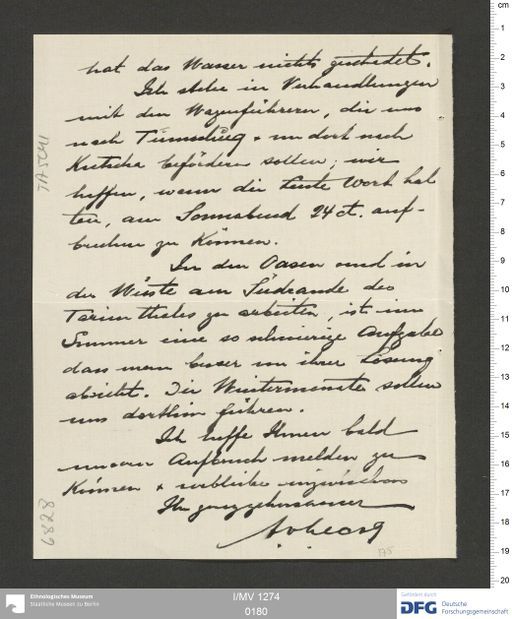 hat das Wasser nichts geschadet.
Ich stehe in Verhandlungen
mit den Wagenführern, die uns
nach + von dort nach
Kutscha befördern sollen; wir
hoffen, wenn die Leute Wort hal
ten, am Sonnabend 24 ct. auf-
brechen zu können.
In den Oasen und in
der Wüste am Südrande des
Tarim thales zu arbeiten, ist im
Sommer eine so schwierige Aufgabe
dass man besser von ihrer Lösung
absieht. Die Wintermonate sollen
uns dorthin führen.
Ich hoffe Ihnen bald
unseren Aufbruch melden zu
können + verbleibe inzwischen
Ihr ganz gehorsamer
TA 5041
6828
175
Ethnologisches Museum
Staatliche Museen zu Berlin
I/MV 1274
0180
Gefördert durch
DFG
Deutsche
Forschungsgemeinschaft
cm
1
2
3
4
5
6
7
8
9
10
11
12
13
14
15
16
17
18
19
20